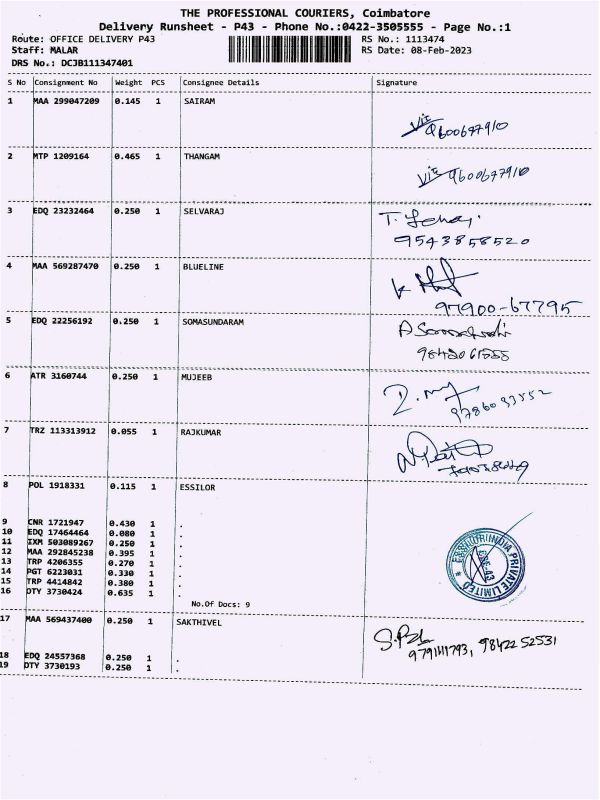 THE PROFESSIONAL COURIERS, Coimbatore
Delivery Runsheet - P43 - Phone No.:0422-3505555 - Page No.:1
Route: OFFICE DELIVERY P43 RS No.: 1113474
Staff: MALAR RS Date: 08-Feb-2023
DRS No.: DCJB111347401
S No Consignment No Weight PCS Consignee Details Signature
1 MAA 299047209 0.145 1 SAIRAM
9600647910
2 MTP 1209164 0.465 1 THANGAM
9600647910
3 EDQ 23232464 0.250 1 SELVARAJ
9543858520
4 MAA 569287470 0.250 1 BLUELINE
97900-67795
5 EDQ 22256192 0.250 1 SOMASUNDARAM
6 ATR 3160744 0.250 1 MUJEEB
7 TRZ 113313912 0.055 1 RAJKUMAR
8 POL 1918331 0.115 1 ESSILOR
9 CNR 1721947 0.430 1 .
10 EDQ 17464464 0.080 1 .
11 IXM 503089267 0.250 1 .
12 MAA 292845238 0.395 1 .
13 TRP 4206355 0.270 1 .
14 PGT 6223031 0.330 1 .
15 TRP 4414842 0.380 1 .
16 DTY 3730424 0.635 1 .
No.Of Docs: 9
INDIA PRIVATE LIMITED
17 MAA 569437400 0.250 1 SAKTHIVEL
98422 52531
18 EDQ 24557368 0.250 1 .
19 DTY 3730193 0.250 1 .